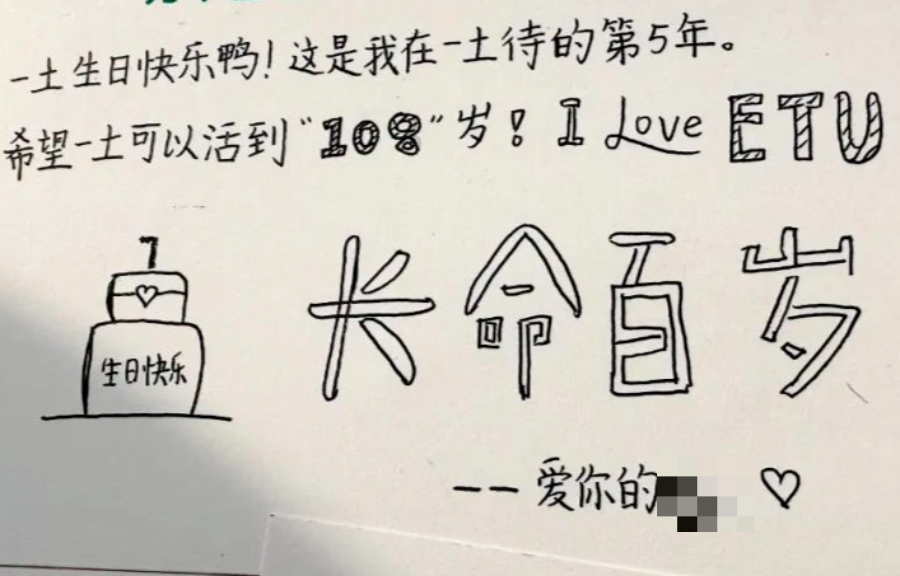 一土生日快乐鸭！这是我在一土待的第5年。
希望一土可以活到“108”岁！I Love ETU
7
生日快乐
长命百岁
——爱你的 ♡